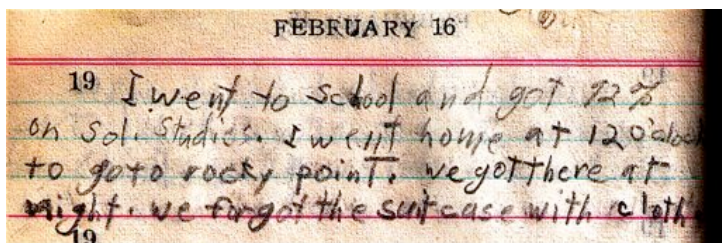 FEBRUARY 16
19 I went to school and got 92%
on Sol. Studies. I went home at 12 O'cloc
to goto rocky point. we got there at
night. we forgot the suitcase with cloth
19